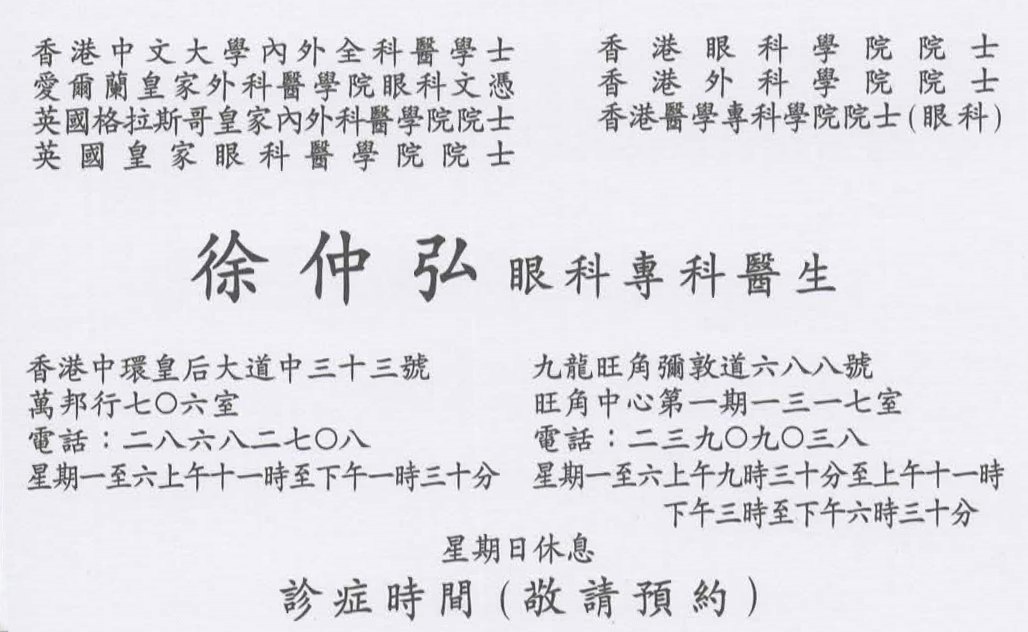 香港中文大學內外全科醫學士
愛爾蘭皇家外科醫學院眼科文憑
英國格拉斯哥皇家內外科醫學院院士
英國皇家眼科醫學院院士
香港眼科學院院士
香港外科學院院士
香港醫學專科學院院士(眼科)
徐仲弘眼科專科醫生
香港中環皇后大道中三十三號
萬邦行七〇六室
電話：二八六八二七〇八
星期一至六上午十一時至下午一時三十分
九龍旺角彌敦道六八八號
旺角中心第一期一三一七室
電話：二三九〇九〇三八
星期一至六上午九時三十分至上午十一時
下午三時至下午六時三十分
星期日休息
診症時間(敬請預約)